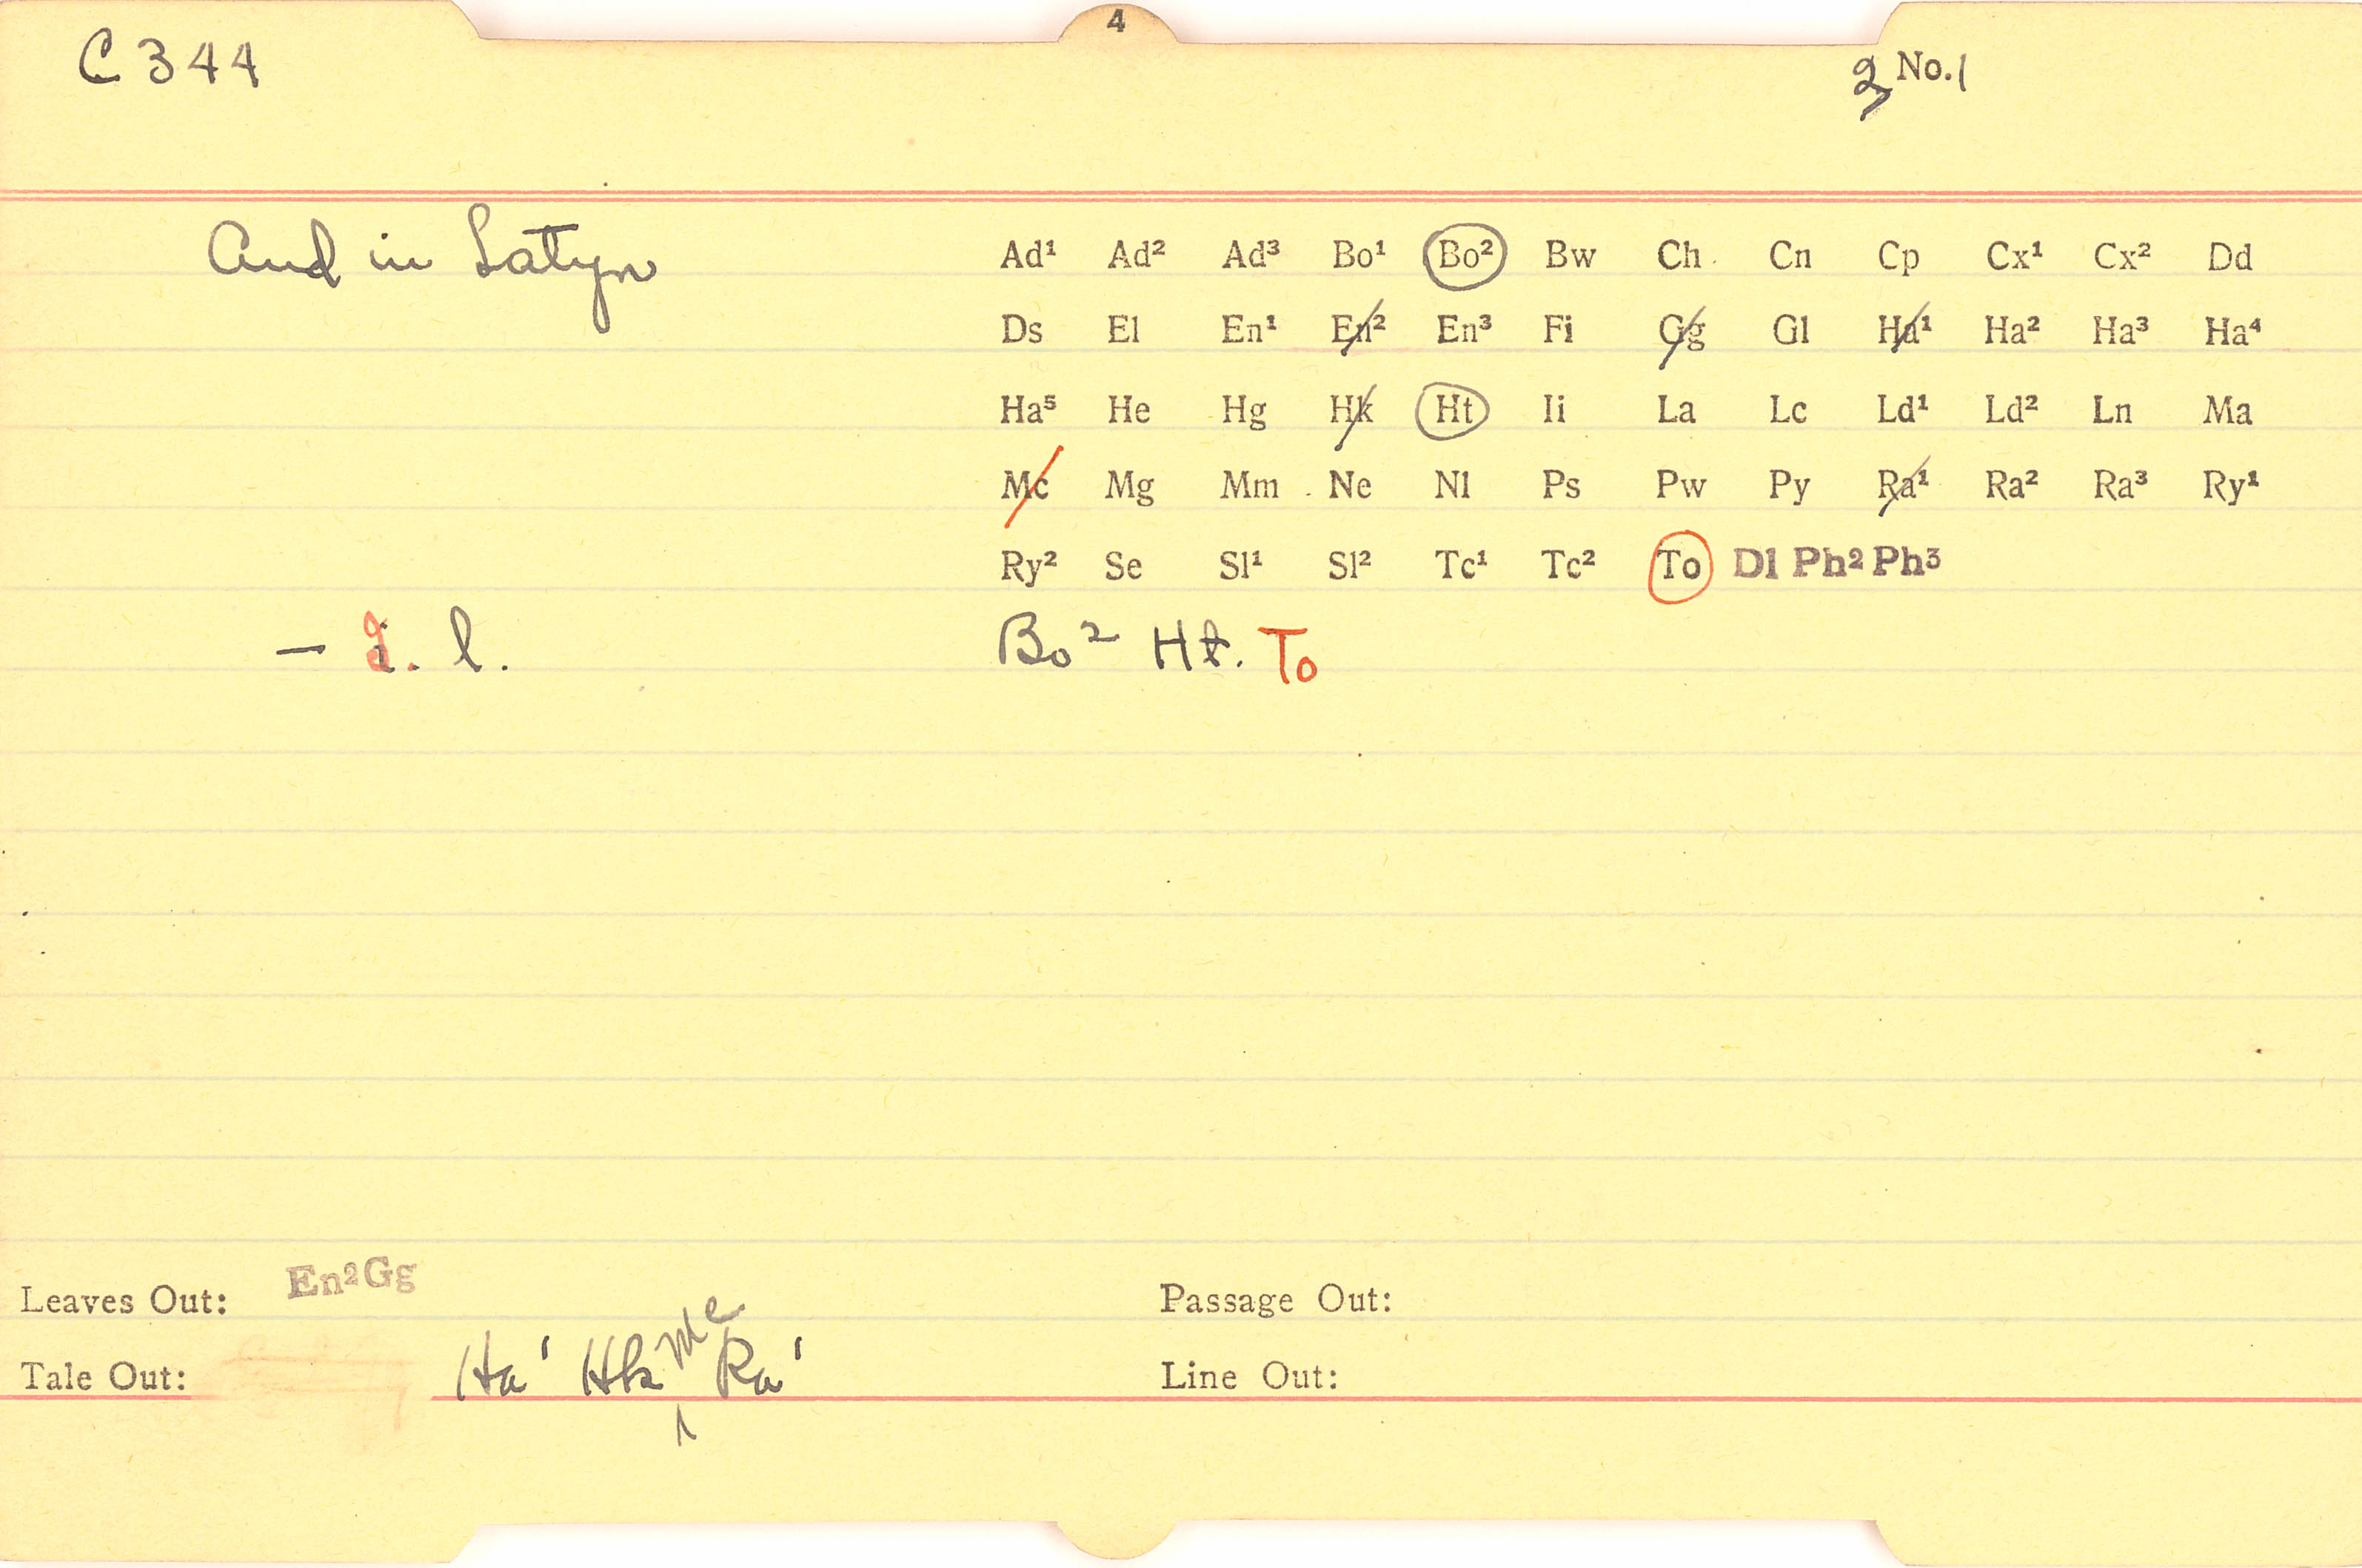 4
C 344 2 No. 1
And in Latyn Ad¹ Ad² Ad³ Bo¹ Bo² Bw Ch Cn Cp Cx¹ Cx² Dd
Ds El En¹ En² En³ Fi Gg Gl Ha¹ Ha² Ha³ Ha⁴
Ha⁵ He Hg Hk Ht Ii La Lc Ld¹ Ld² Ln Ma
Mc Mg Mm Ne Nl Ps Pw Py Ra¹ Ra² Ra³ Ry¹
Ry² Se Sl¹ Sl² Tc¹ Tc² To Dl Ph² Ph³
— l. Bo² Ht. To
Leaves Out: En²Gg Passage Out:
Tale Out: Ha¹ Hk Mc Ra¹ Line Out: